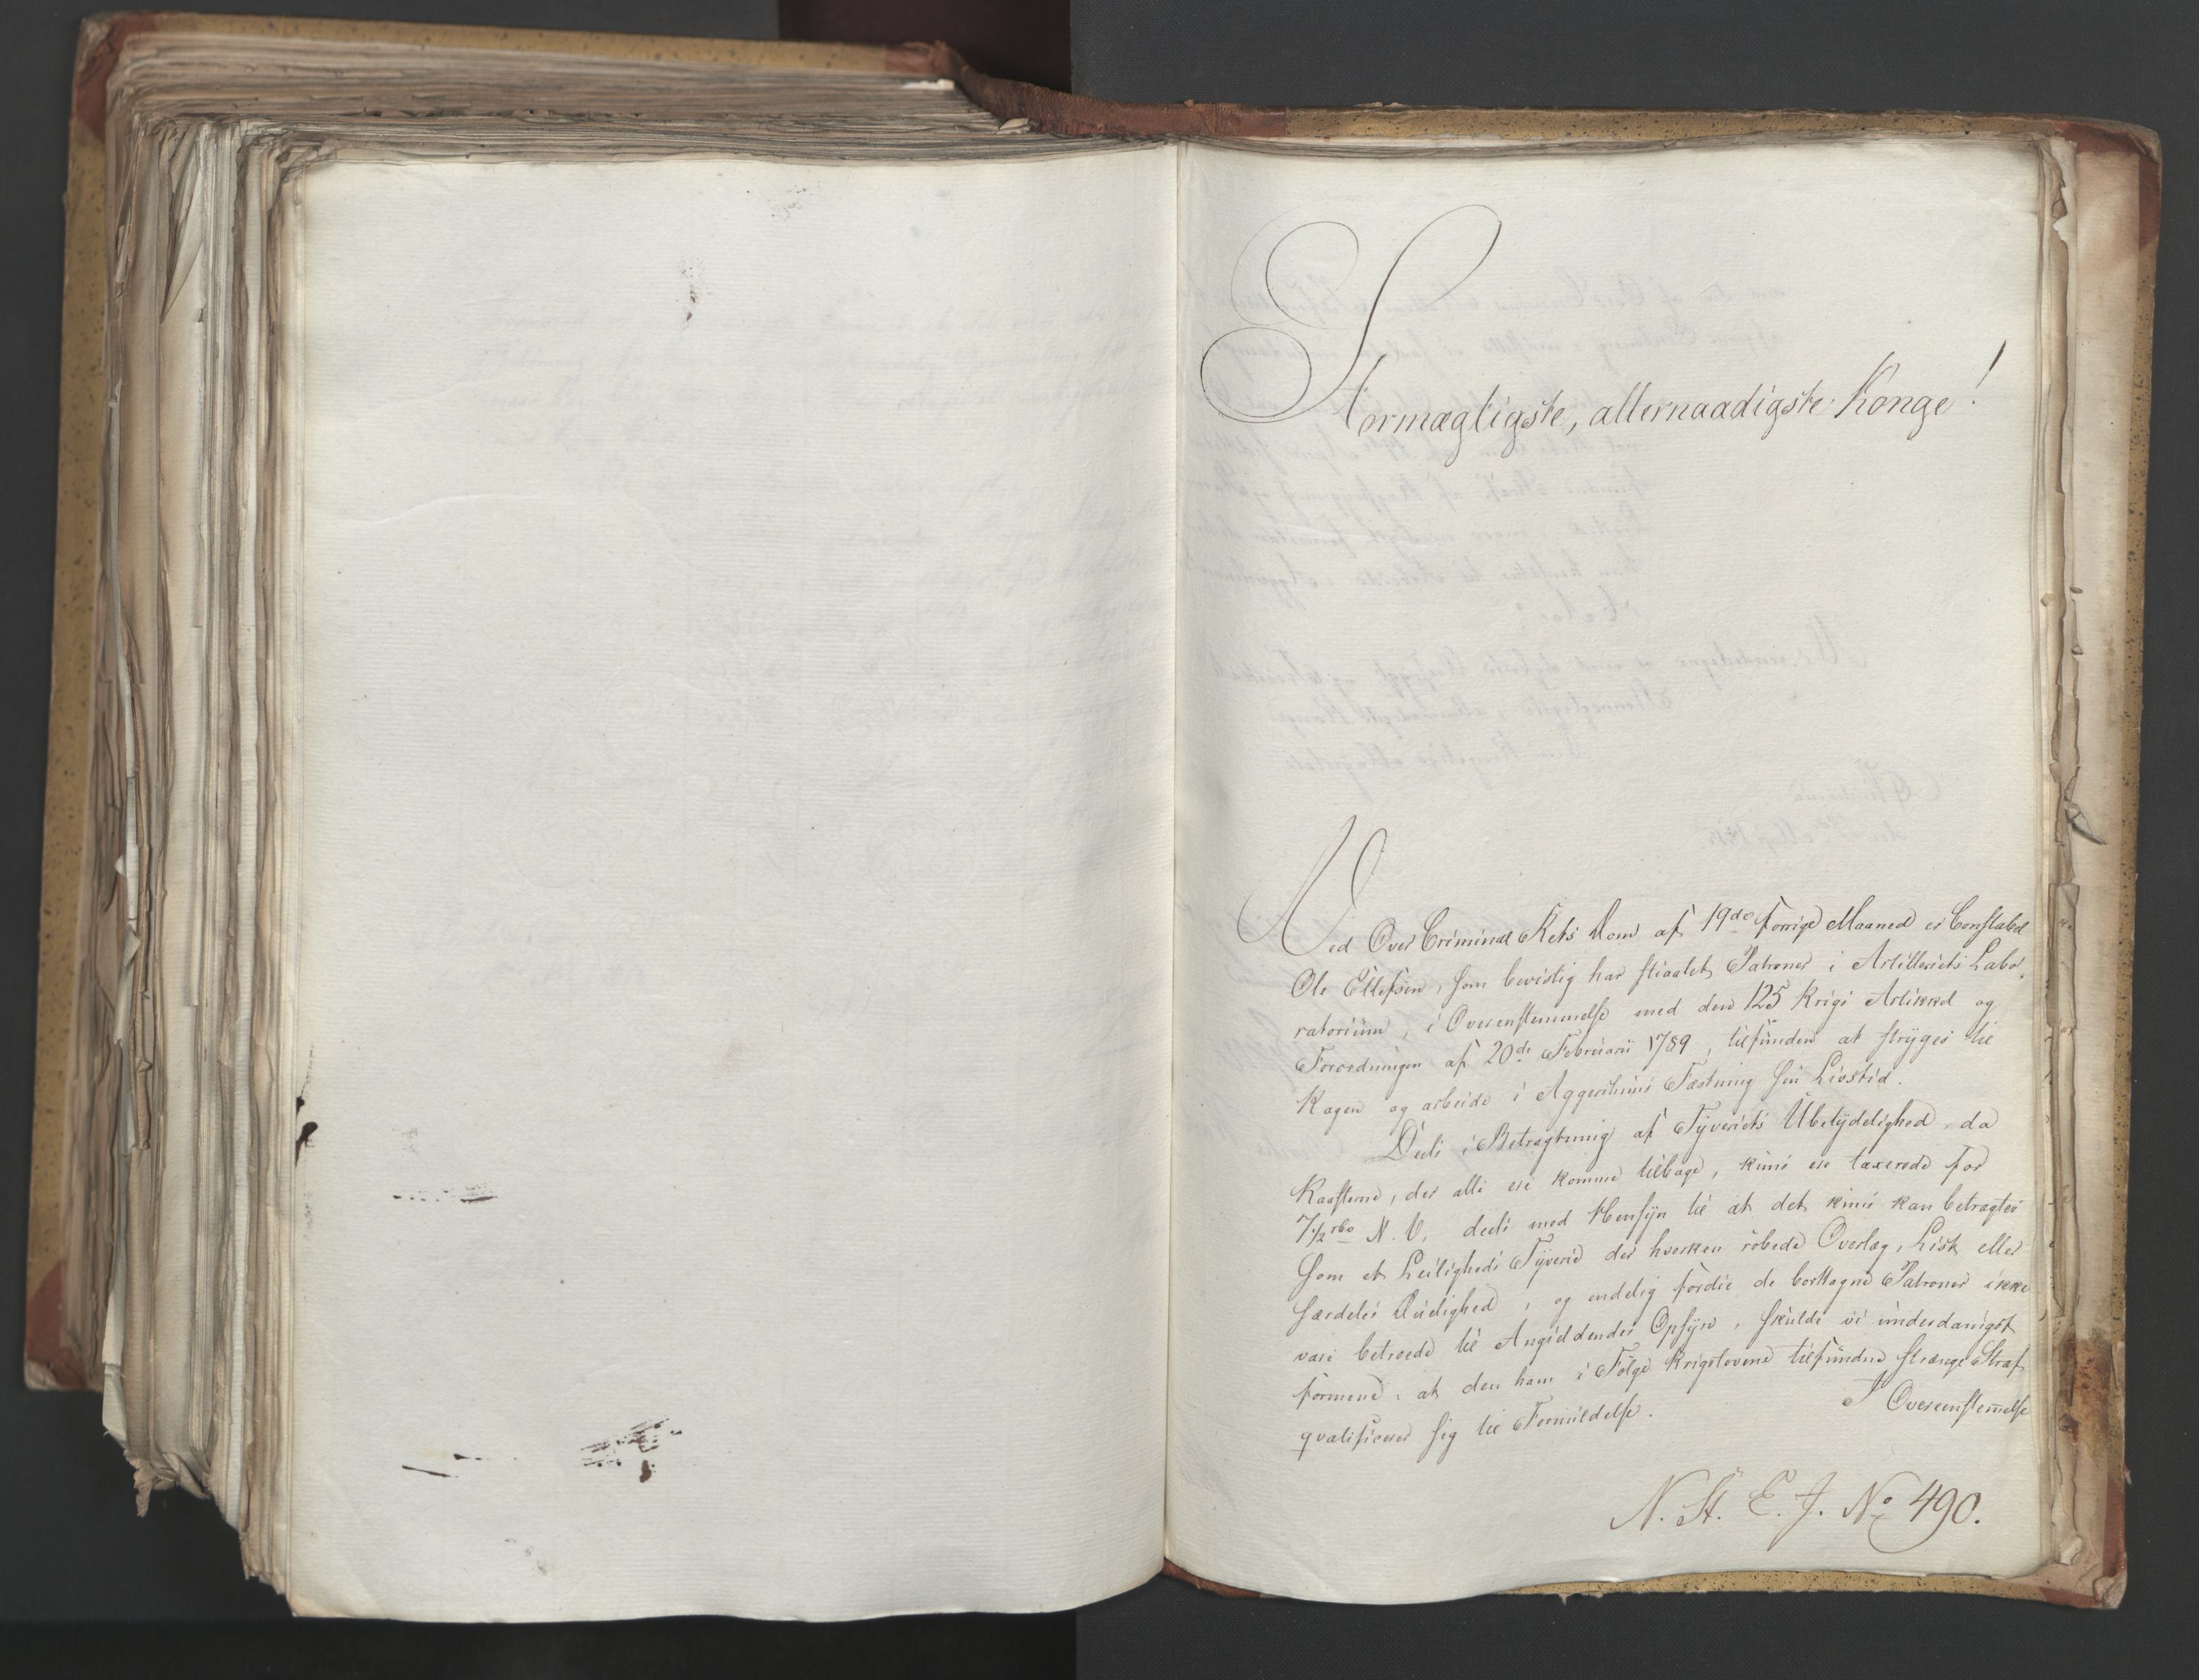 Stormægtigste, allernaadigste Konge!
Ved Over Criminal Rets Dom af 19de forrige Maaned er Constabel
Ole Ellefsen, som bevislig har stiaalet Patroner i Artilleriets Labo¸
ratorium, i Overenstemmelse med den 125 Krigs Artikkel og
Forordningen af 20de Februarii 1789, tilfunden at stryges til
Kagen og arbeide i Aggershuus Fæstning sin Livstid.
Deels i Betragtning af Tyveriets Ubetydelighed, da
Kaasterne, der alle ere komne tilbage, kuns ere taxerede for
7½ rbs N.V, deels med Hensyn til at det kuns kan betragtes
som et Leiligheds Tyverie der hverken røbede Overlæg, List eller
særdeles Dristighed, og endelig fordie de borttagne Patroner ikke
vare betroede til Angieldendes Opsyn, skulde vi underdanigst
formene, at den ham i Følge Krigslovene tilfundne strænge Straf
qvalificerer sig til Formildelse.
I Overeenstemelse
N. St. E. J. No 490.